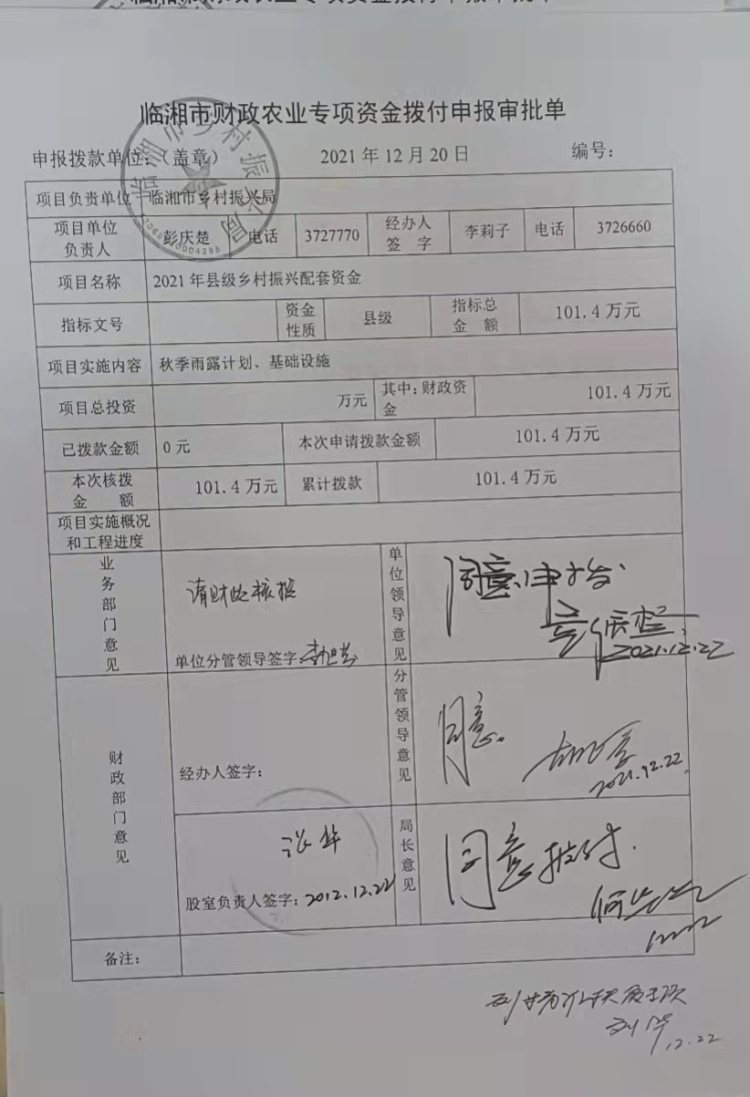 临湘市财政农业专项资金拨付申报审批单
申报拨款单位：（盖章） 2021 年 12 月 20 日 编号：
项目负责单位 临湘市乡村振兴局
项目单位负责人 彭庆楚 电话 3727770 经办人签字 李莉子 电话 3726660
项目名称 2021 年县级乡村振兴配套资金
指标文号 资金性质 县级 指标总金额 101.4 万元
项目实施内容 秋季雨露计划、基础设施
项目总投资 万元 其中：财政资金 101.4 万元
已拨款金额 0 元 本次申请拨款金额 101.4 万元
本次核拨金额 101.4 万元 累计拨款 101.4 万元
项目实施概况和工程进度
业务部门意见 请财政核拨 单位领导意见 同意
单位分管领导签字： 2021.12.22
财政部门意见 分管领导意见 同意
经办人签字： 2021.12.22
局长意见 同意拨付.
股室负责人签字：2012.12.22
备注：
12.22